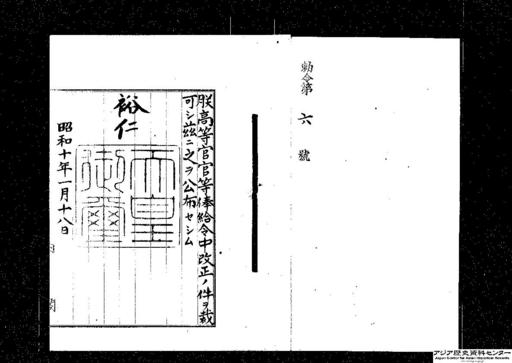 勅令第六號
朕高等官官等俸給令中改正ノ件ヲ裁
可シ茲ニ之ヲ公布セシム
裕仁
天皇御璽
昭和十年一月十八日
内閣
アジア歴史資料センター
Japan Center for Asian Historical Records